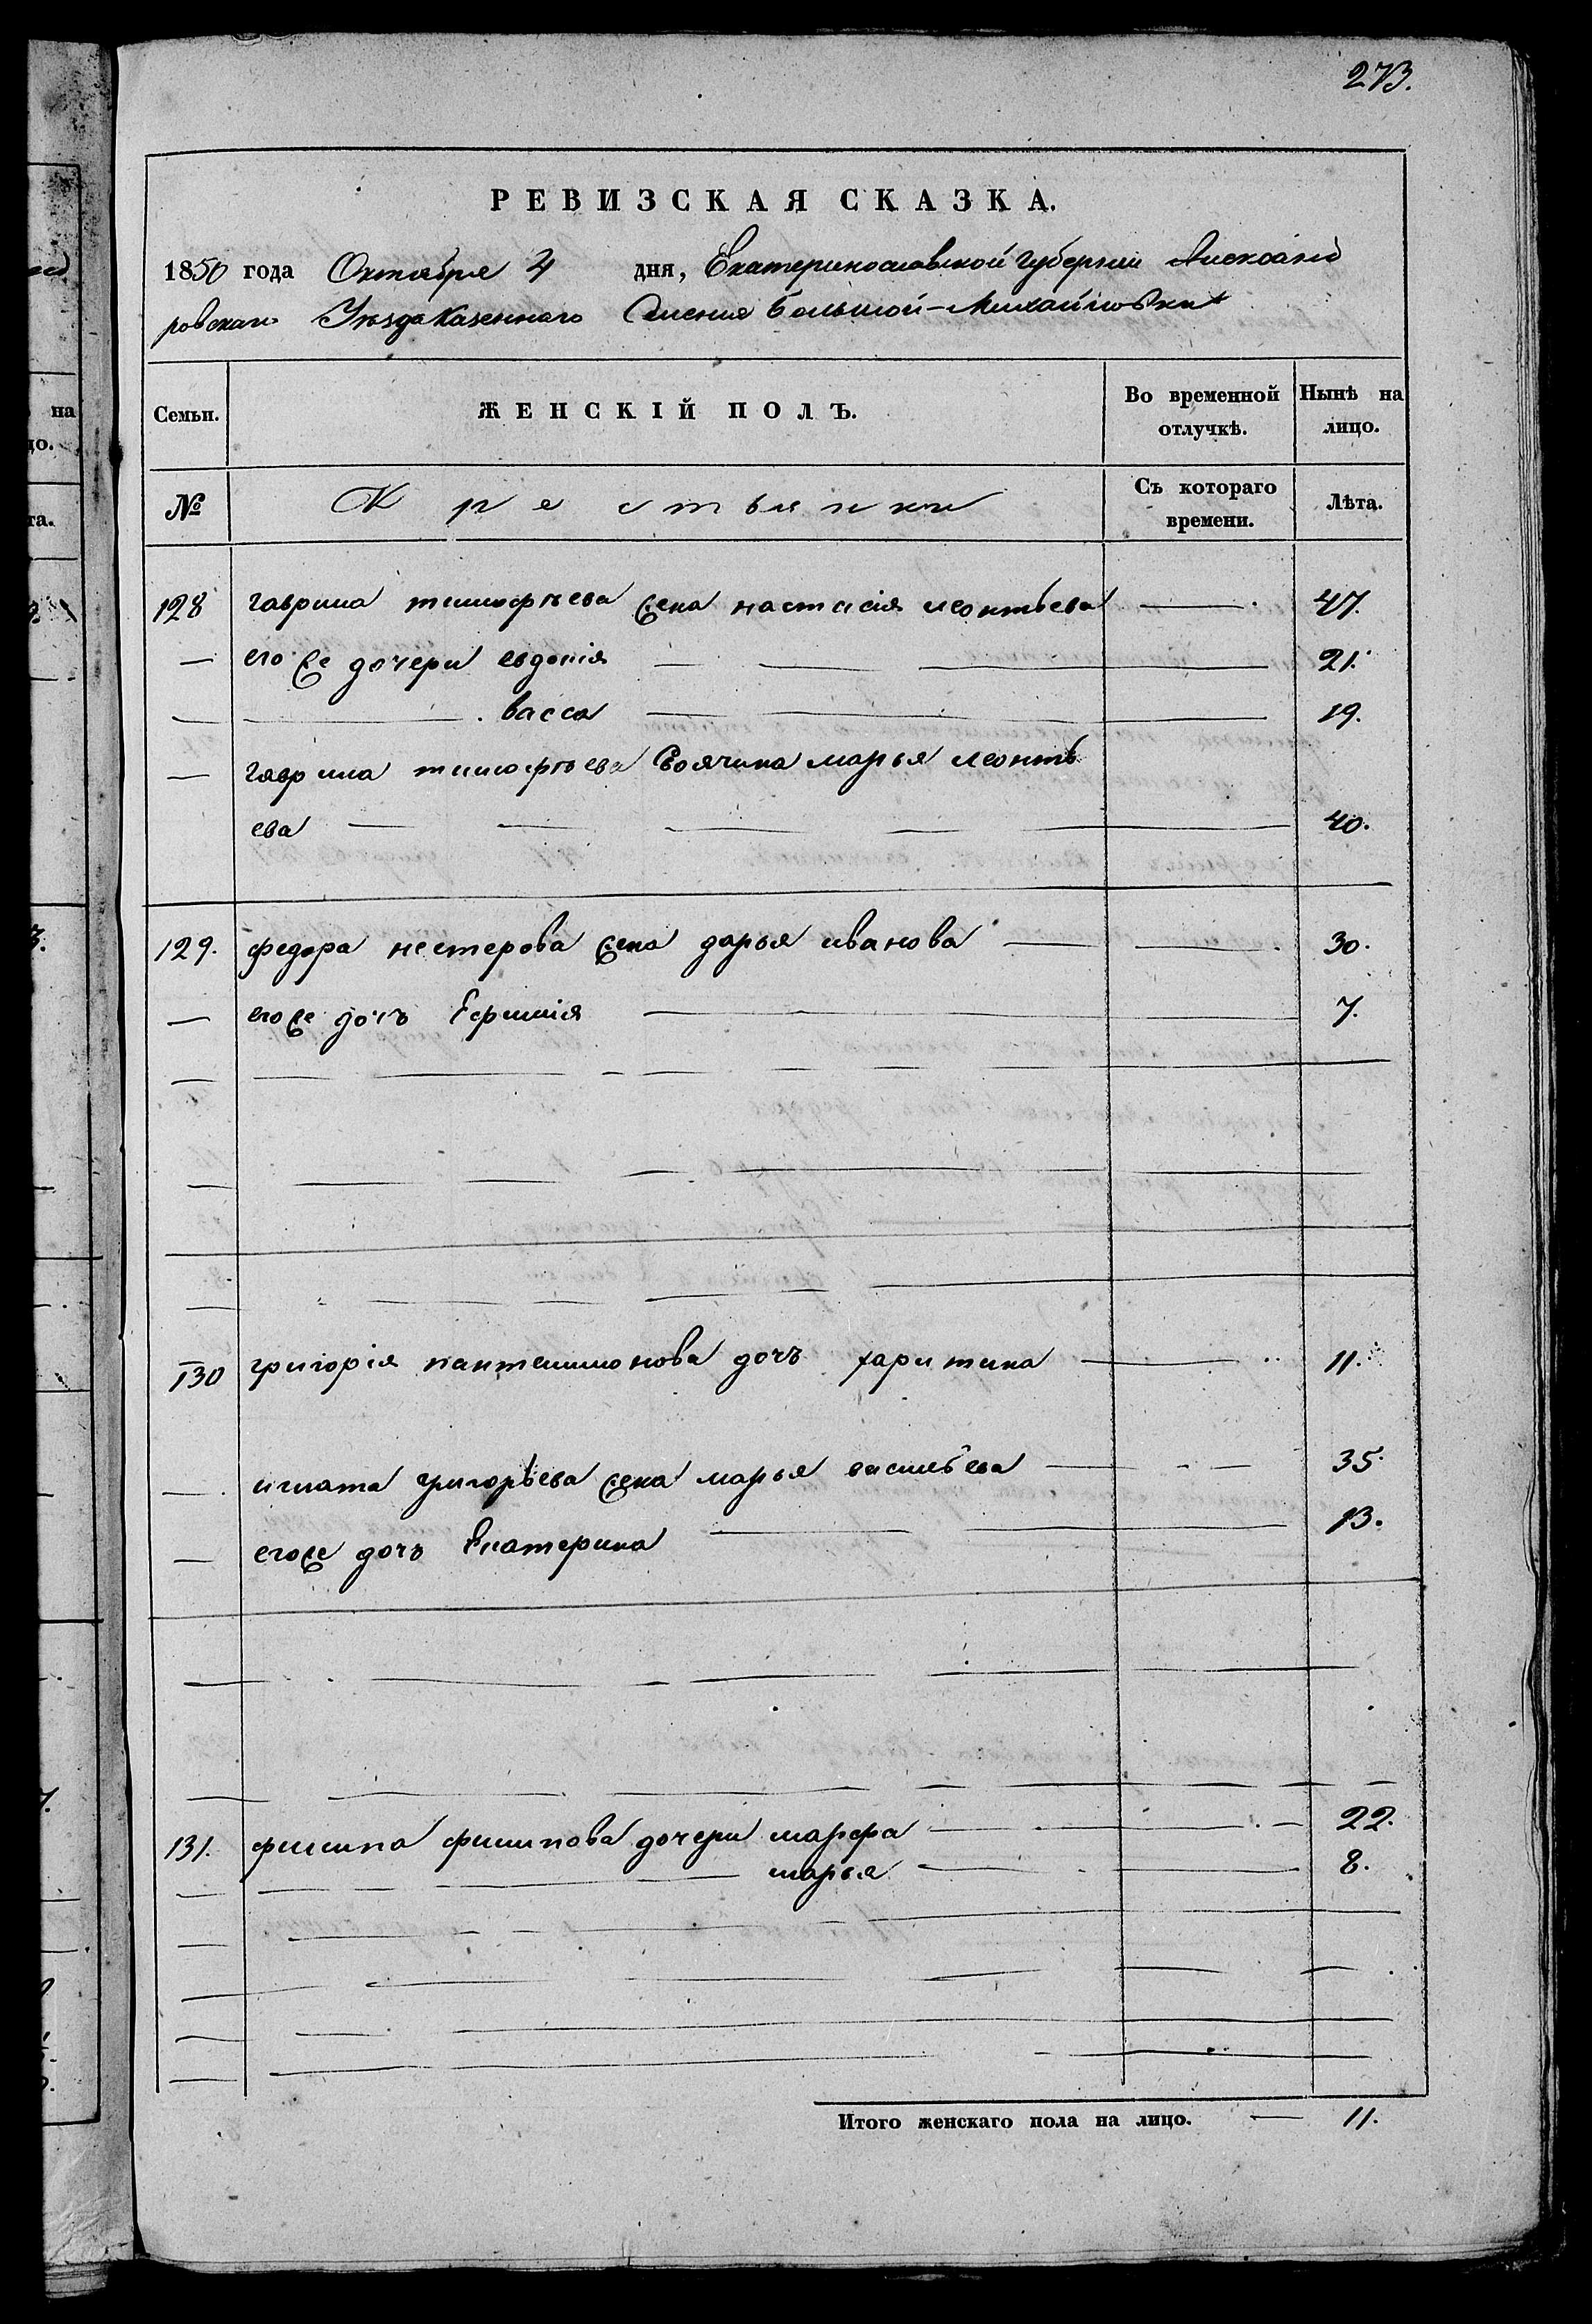 273.
РЕВИЗСКАЯ СКАЗКА.
1850 года Октября 4 дня, Екатеринославской Губернии Александ
ровскаго Уѣзда Казеннаго Селения Большой-Михайловки
Семьи. ЖЕНСКІЙ ПОЛЪ. Во временной отлучкѣ. Нынѣ на лицо.
№ Крестьянки Съ котораго времени. Лѣта.
128 гаврила тимофѣева жена настасія леонтьева — 47.
— его же дочери евдокія — 21.
— — васса — 19.
— гаврила тимофѣева своячина марья леонть
ева — 40.
129. федора нестерова жена дарья иванова — 30.
— егоже дочъ Ефимія — 7.
130 григорія пантелимонова дочъ харитина — 11.
— игната григорьева жена марья васильева — 35.
— егоже дочъ Екатерина — 13.
131. филипа филипова дочери марфа — 22.
— — марья — 8.
Итого женскаго пола на лицо. — 11.